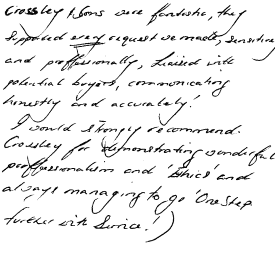 Crossley & Sons were fantastic, they
supported every request we made, sensitive
and proffessionally, liaised with
potential buyers, communicating
honestly and accurately!
I would strongly recommend.
Crossley for demonstrating wonderful
proffessionalism and 'Ethics' and
always managing to go 'One Step
further with Service!')